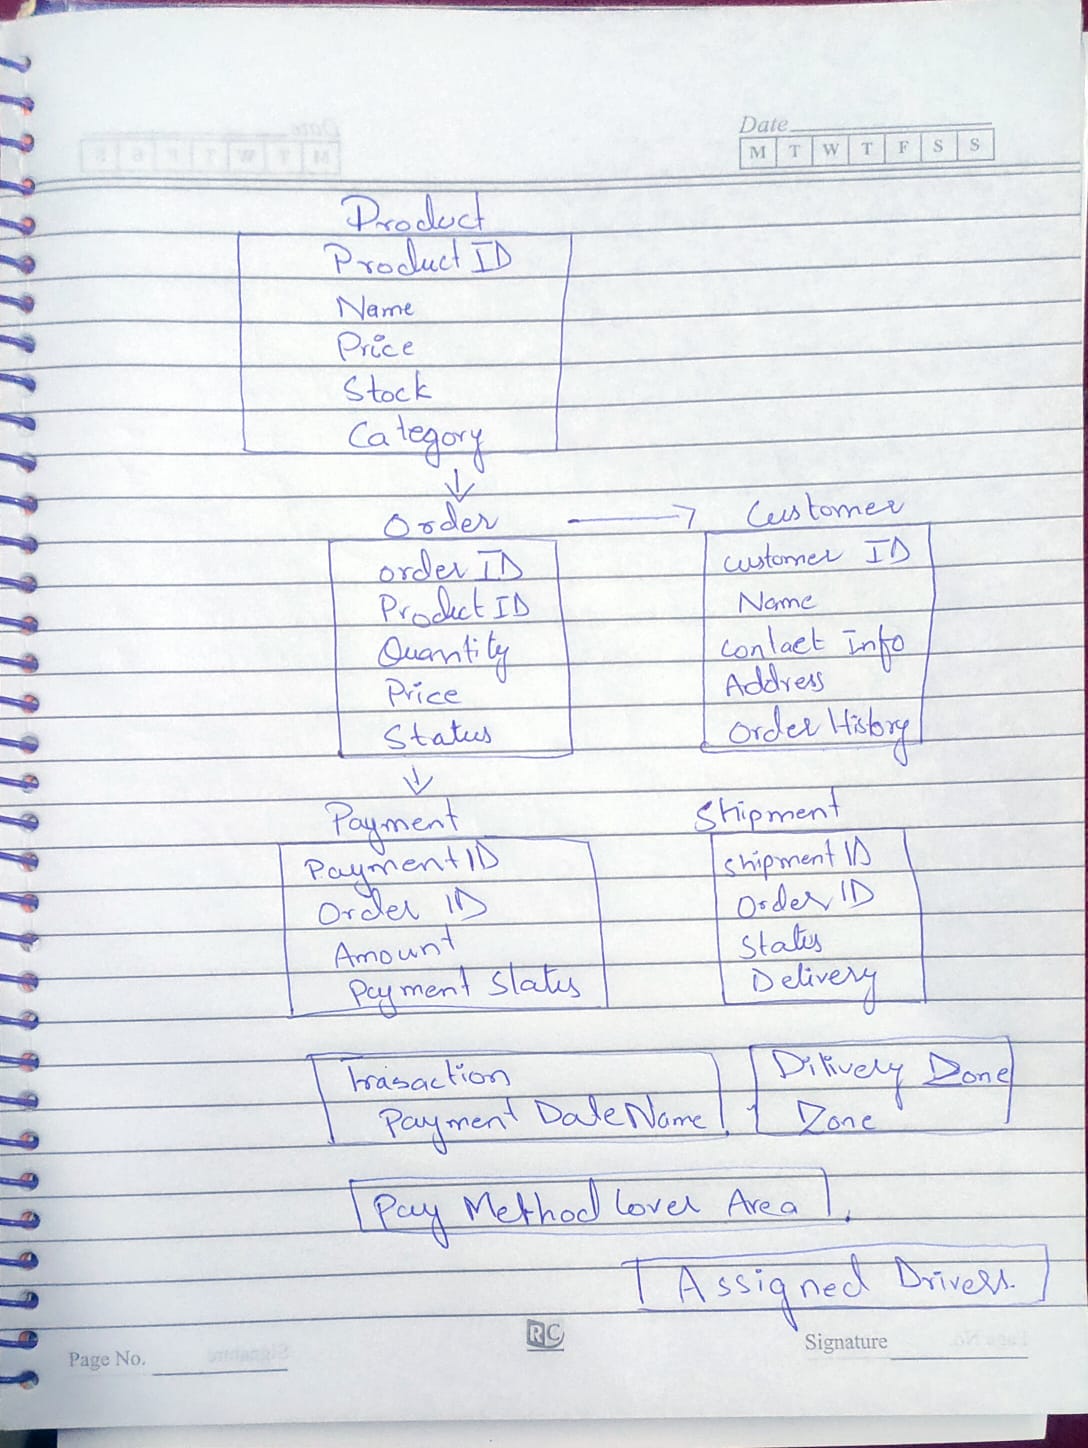 Date
M T W T F S S
Product
Product ID
Name
Price
Stock
Category
Order
Customer
order ID
Product ID
Quantity
Price
Status
customer ID
Name
Contact Info
Address
Order History
Payment
Shipment
Payment ID
Order ID
Amount
Payment Status
shipment ID
Order ID
Status
Delivery
Trasaction
Payment Date Name.
Dilively Zone
Zone
Pay Method Cover Area.
Assigned Drivers.
RC
Page No.
Signature